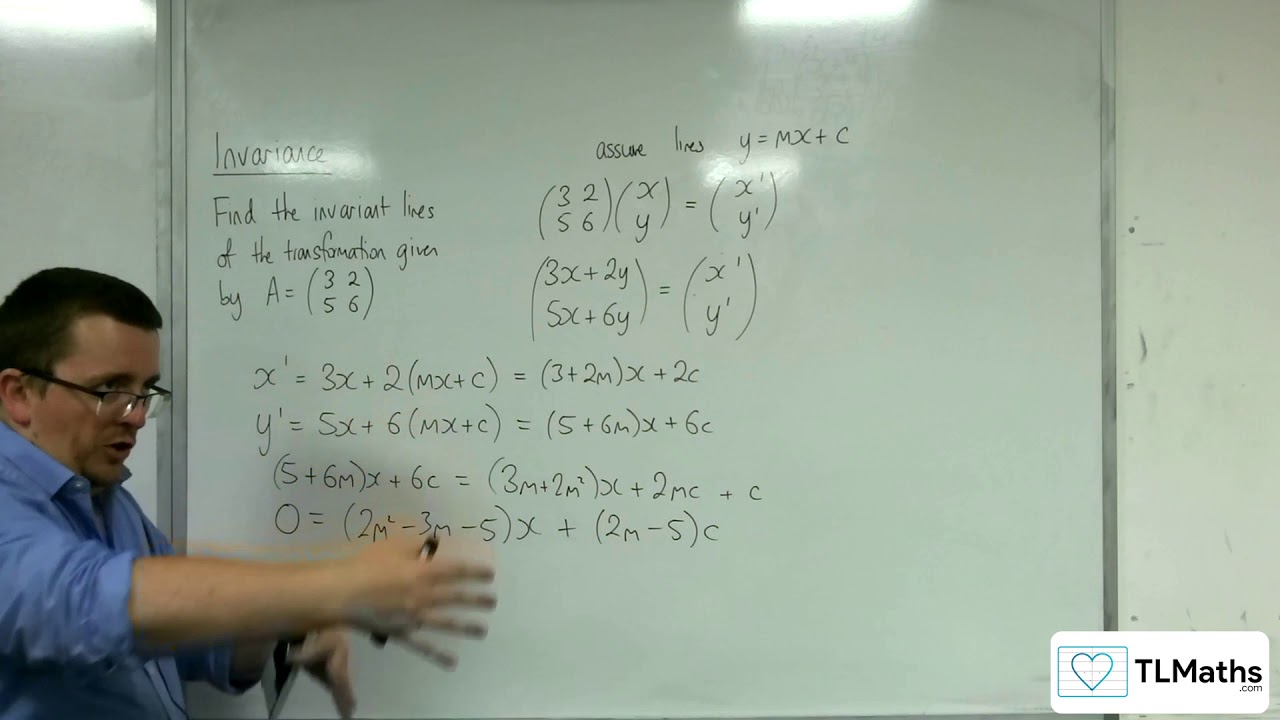 Invariance
Find the invariant lines
of the transformation given
by A = (3 2
5 6)
assume lines y = mx + c
(3 2
5 6)(x
y) = (x'
y')
(3x + 2y
5x + 6y) = (x'
y')
x' = 3x + 2(mx + c) = (3 + 2m)x + 2c
y' = 5x + 6(mx + c) = (5 + 6m)x + 6c
(5 + 6m)x + 6c = (3m + 2m²)x + 2mc + c
0 = (2m² - 3m - 5)x + (2m - 5)c
TLMaths
.com